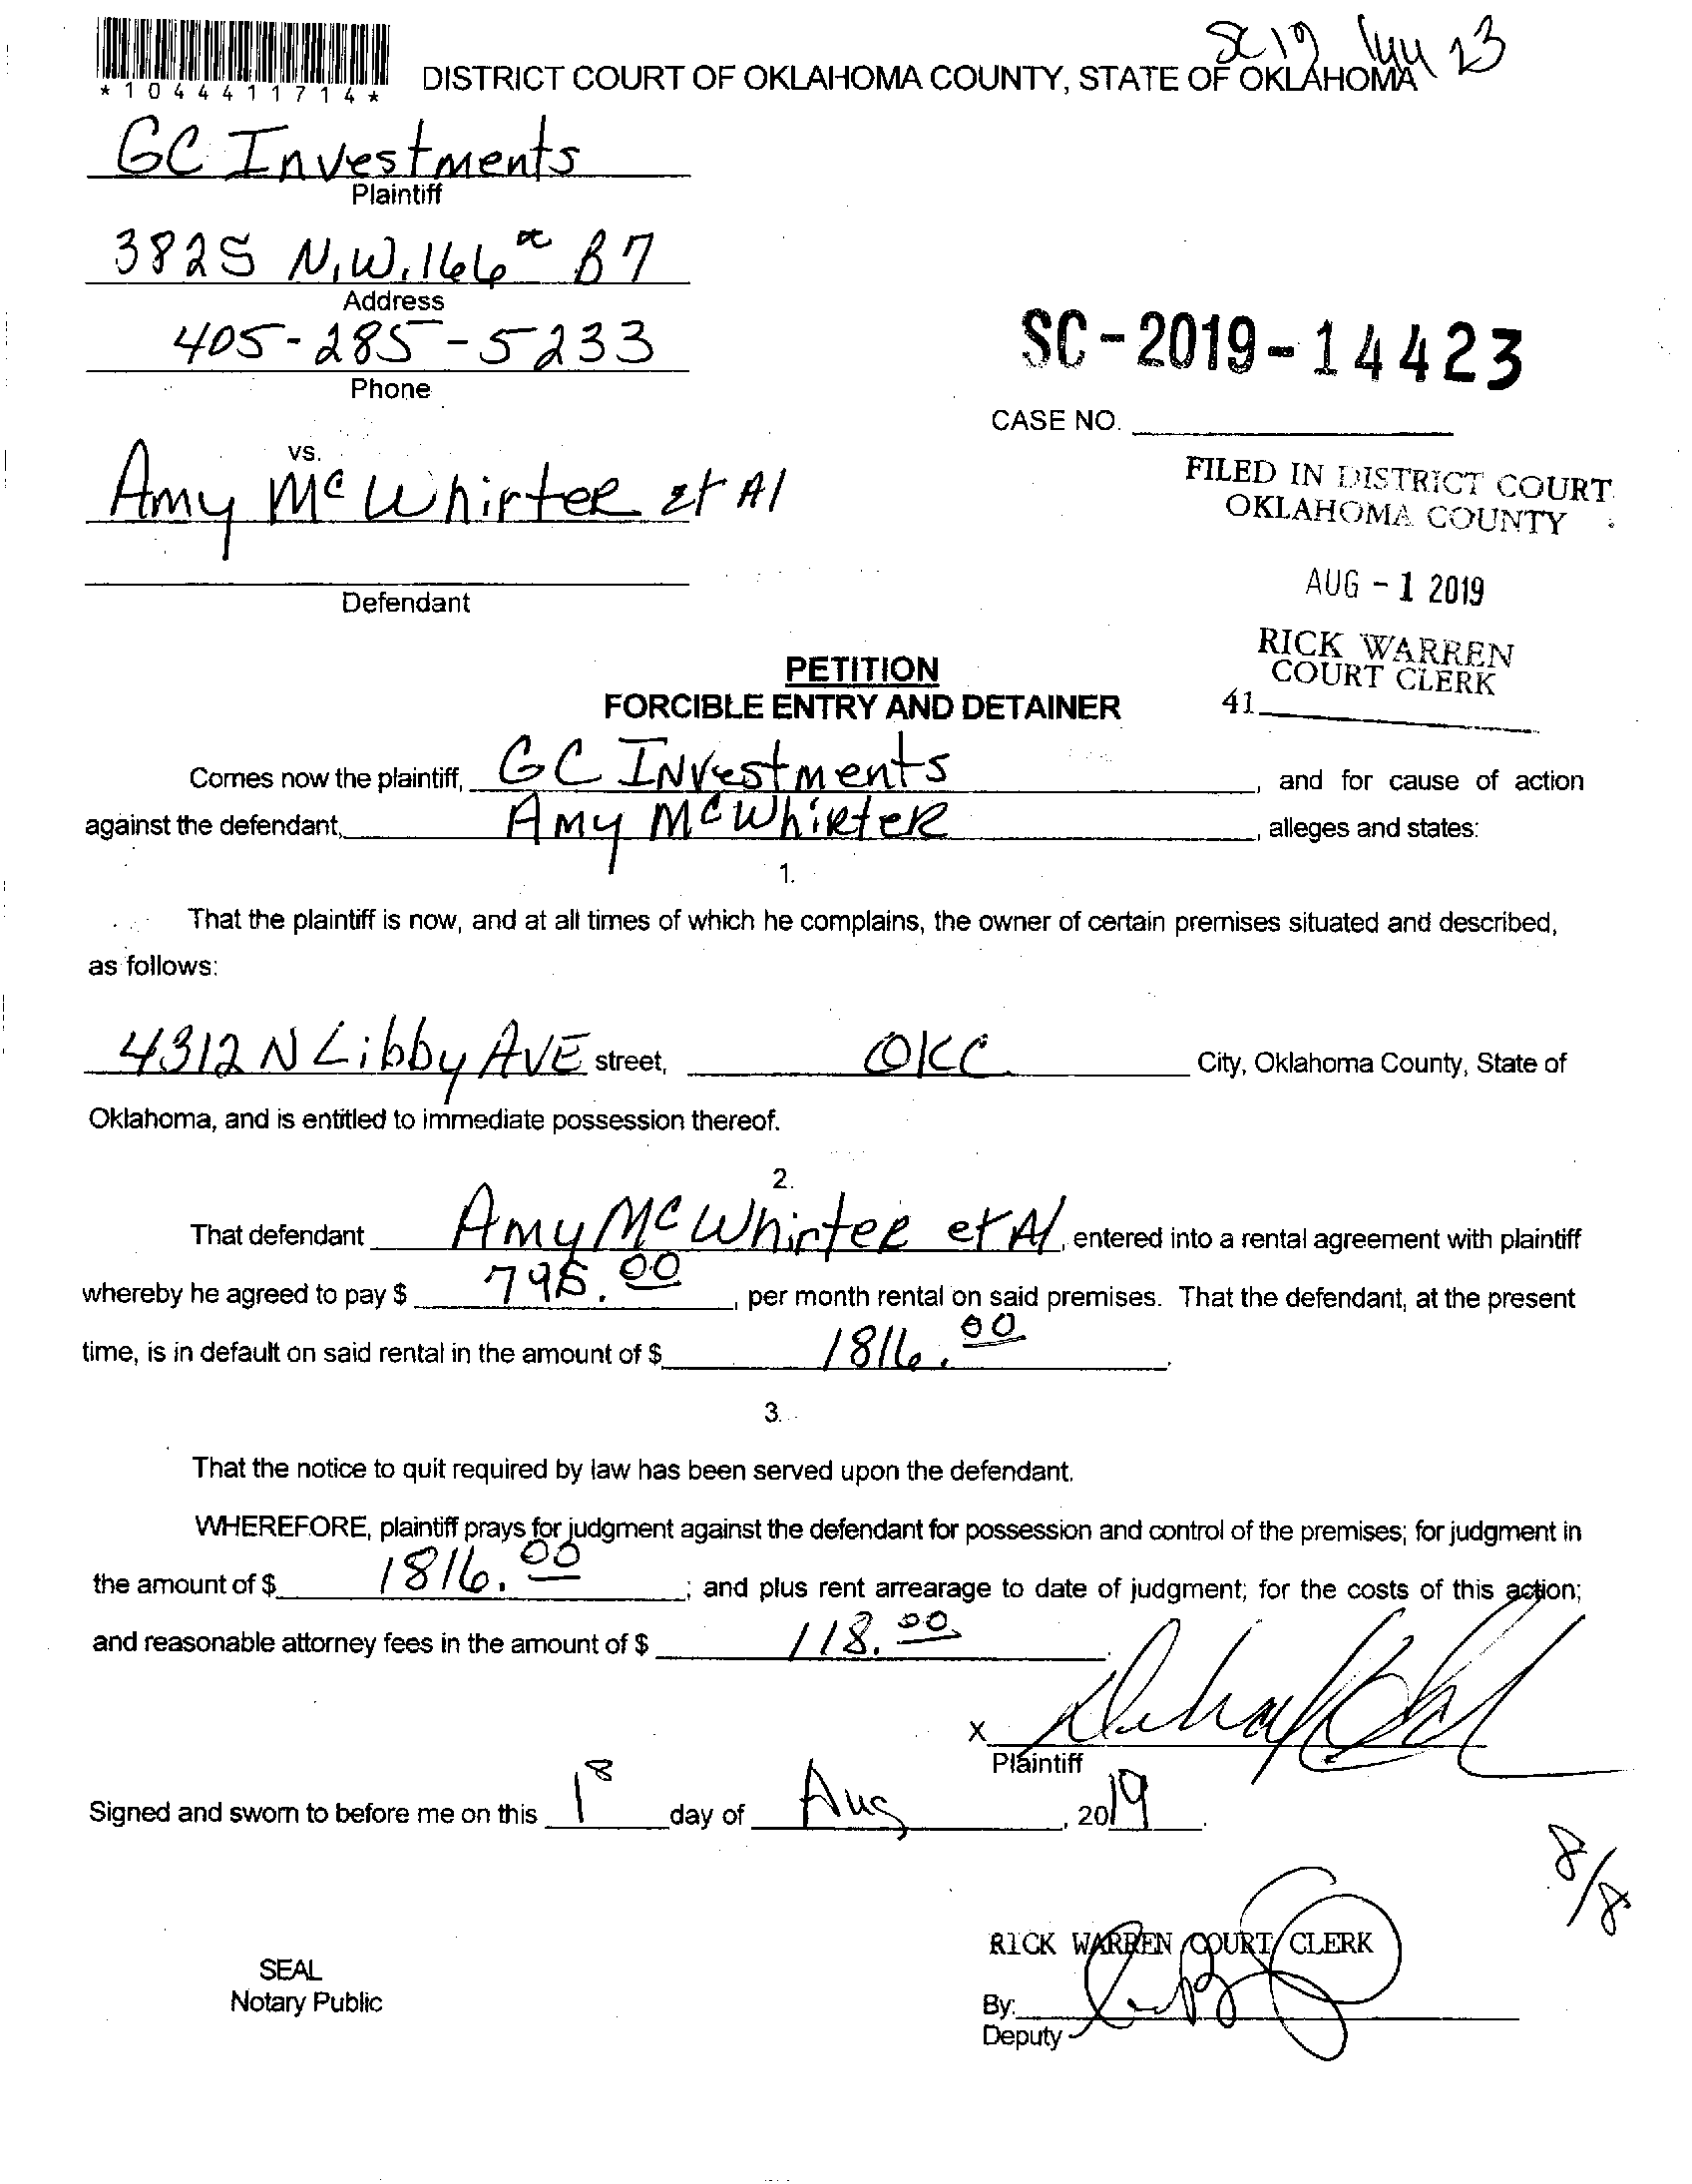 SC19 14423
*1044411714*
DISTRICT COURT OF OKLAHOMA COUNTY, STATE OF OKLAHOMA
GC Investments
Plaintiff
3825 N.W. 166th B7
Address
405-285-5233
Phone
SC-2019-14423
CASE NO.
vs.
Amy McWhirter et Al
Defendant
FILED IN DISTRICT COURT
OKLAHOMA COUNTY
AUG - 1 2019
RICK WARREN
COURT CLERK
41
PETITION
FORCIBLE ENTRY AND DETAINER
Comes now the plaintiff, GC Investments, and for cause of action
against the defendant, Amy McWhirter, alleges and states:
1.
That the plaintiff is now, and at all times of which he complains, the owner of certain premises situated and described,
as follows:
4312 N Libby AVE street, OKC City, Oklahoma County, State of
Oklahoma, and is entitled to immediate possession thereof.
2.
That defendant Amy McWhirter et Al, entered into a rental agreement with plaintiff
whereby he agreed to pay $ 795.00, per month rental on said premises. That the defendant, at the present
time, is in default on said rental in the amount of $ 1816.00.
3.
That the notice to quit required by law has been served upon the defendant.
WHEREFORE, plaintiff prays for judgment against the defendant for possession and control of the premises; for judgment in
the amount of $ 1816.00; and plus rent arrearage to date of judgment; for the costs of this action;
and reasonable attorney fees in the amount of $ 118.00.
X
Plaintiff
Signed and sworn to before me on this 1 day of Aug, 2019.
8/8
RICK WARREN COURT CLERK
SEAL
Notary Public
By:
Deputy